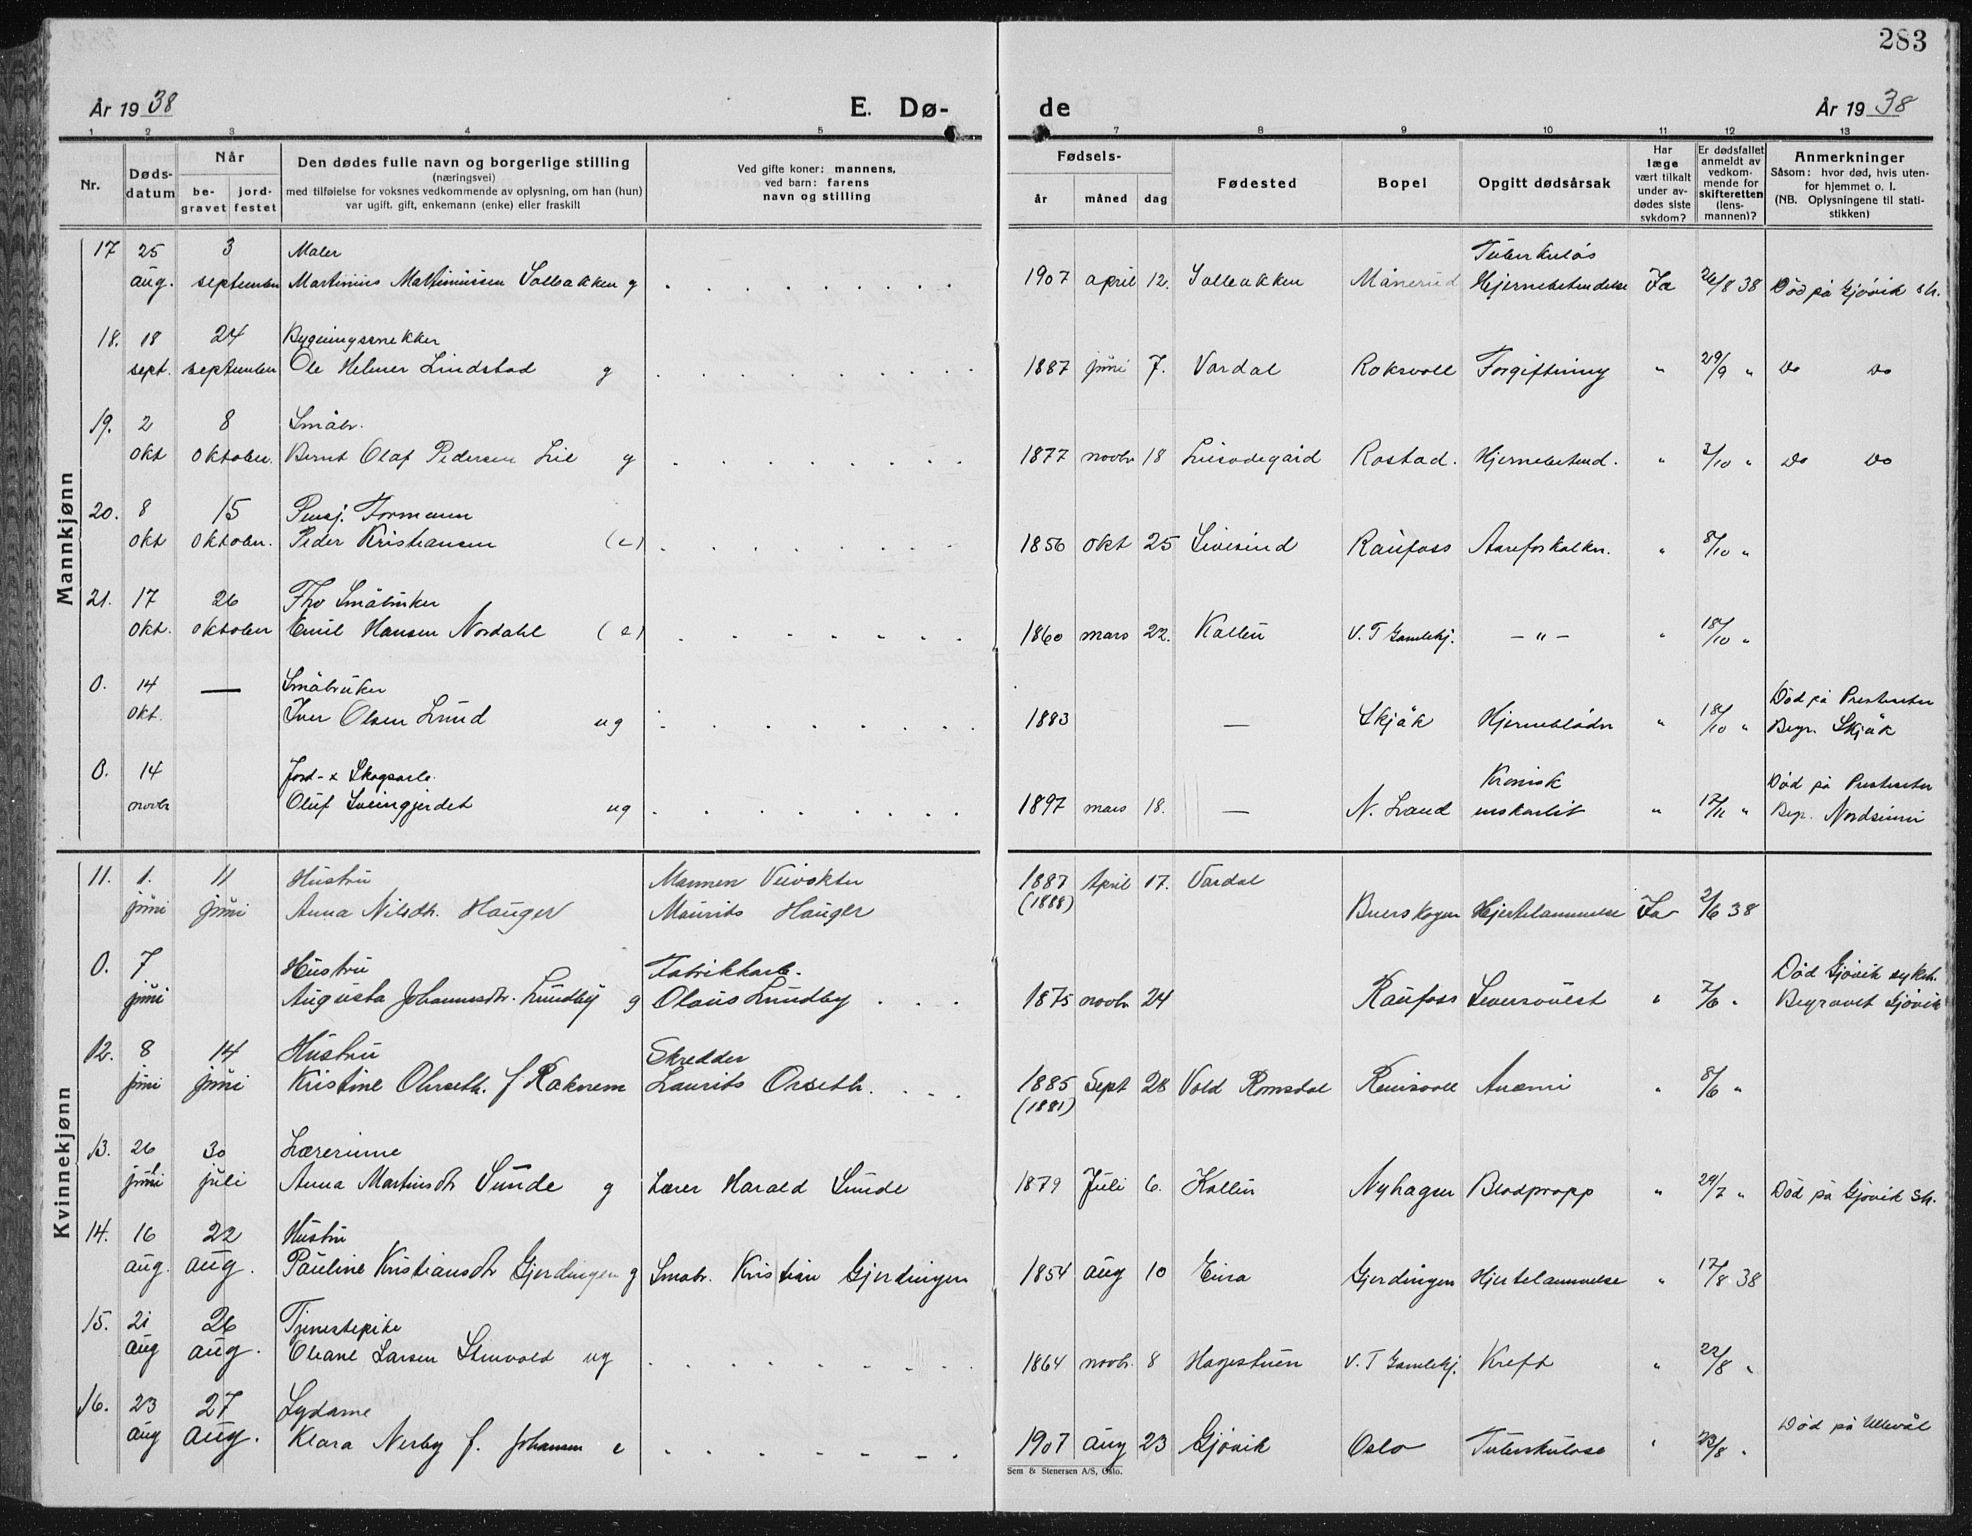 283
År 1938 E. Dø-
de År 1938
1 2 3 4 5
7 8 9 10 11 12 13
Nr.
Døds-
datum
Når
be-
gravet
jord-
festet
Den dødes fulle navn og borgerlige stilling
(næringsvei)
med tilføielse for voksnes vedkommende av oplysning, om han (hun)
var ugift, gift, enkemann (enke) eller fraskilt
Ved gifte koner: mannens,
ved barn: farens
navn og stilling
Fødsels-
år måned dag
Fødested
Bopel
Opgitt dødsårsak
Har
læge
vært tilkalt
under av-
dødes siste
sykdom?
Er dødsfallet
anmeldt av
vedkom-
mende for
skifteretten
(lens-
mannen)?
Anmerkninger
Såsom: hvor død, hvis uten-
for hjemmet o. l.
(NB. Oplysningene til stati-
stikken)
Mannkjønn
17 25 3 Maler Tuberkuløs
aug. september Martinius Solbakken g 1907 april 12. Solbakken Månerud Hjernebetendelse Ja 26/8 38 Død på Gjøvik sh.
18. 18 24 Bygningssnekker
sept. september Ole Helmer Lindstad g 1887 juni 7. Vardal Roksvoll Forgiftning " 29/9 " Do Do
19. 2 8 Småbr.
okt oktober. Bernt Olaf Pedersen Lie g 1877 novbr 18 Rostad. Hjernebetend. " 3/10 " Do Do
20. 8 15 Pensj. Formann
okt oktober. Peder Kristiansen (e) 1856 okt 25 Raufoss Aareforkalkn. " 8/10 "
21. 17 26 Fhv Småbruker
okt. oktober Emil Hansen Nordahl (e) 1860 mars 22. Kolbu V. T Gamlehj. – " – " 18/10 "
0. 14 — Småbruker Død på Presteseter
okt. Iver Olsen Lund ug 1883 — Skjåk Hjerneblødn " 18/10 " Begr. Skjåk
0. 14 Jord- & Skogsarb. Kronisk Død på Presteseter
novbr Oluf Sveingjerdet ug 1897 mars 18. — N. Land " 17/11 " Begr. Nordsinni
Kvinnekjønn
11. 1. 11 Hustru Mannen Veivokter 1887 April 17. Vardal
juni juni Anna Nilsdtr. Hauger Maurits Hauger (1888) Buerskogen Hjertelammelse Ja 2/6 38
0. 7 Hustru Fabrikkarb. Død Gjøvik sykeh.
juni Augusta Johannesdtr. Lundby g Olaus Lundby 1875 novbr 24 Raufoss Leversvulst " 7/6 " Begravet Gjøvik
12. 8 14 Hustru Skredder
juni juni Kristine f. Laurits Orseth. 1885 Sept 28 Vold Romsdal Anæmi " 8/6 "
(1881)
13. 26 30 Lærerinne
juli juli Anna Martinsdtr Sunde g Lærer Harald Sunde 1879 Juli 6. Kolbu Nyhagen Blodpropp " 29/7 " Død på Gjøvik sh.
14. 16 22 Hustru
aug. aug. Pauline Kristiansdtr Gjerdingen g Småbr. Kristian Gjerdingen 1854 aug 10 Eina Gjerdingen Hjertelammelse " 17/8 38
15. 21 26 Tjenestepike
aug aug. Oleane Larsen Stenvold ug 1864 novbr. 8 Hagestuen V. T Gamlehj. Kreft " 22/8 "
16. 23 27 Sydame Død på Ullevål
aug aug. Klara Nerby f. Johansen e 1907 aug 23 Gjøvik Oslo Tuberkulose " 23/8 "
Sem & Stenersen A/S, Oslo.